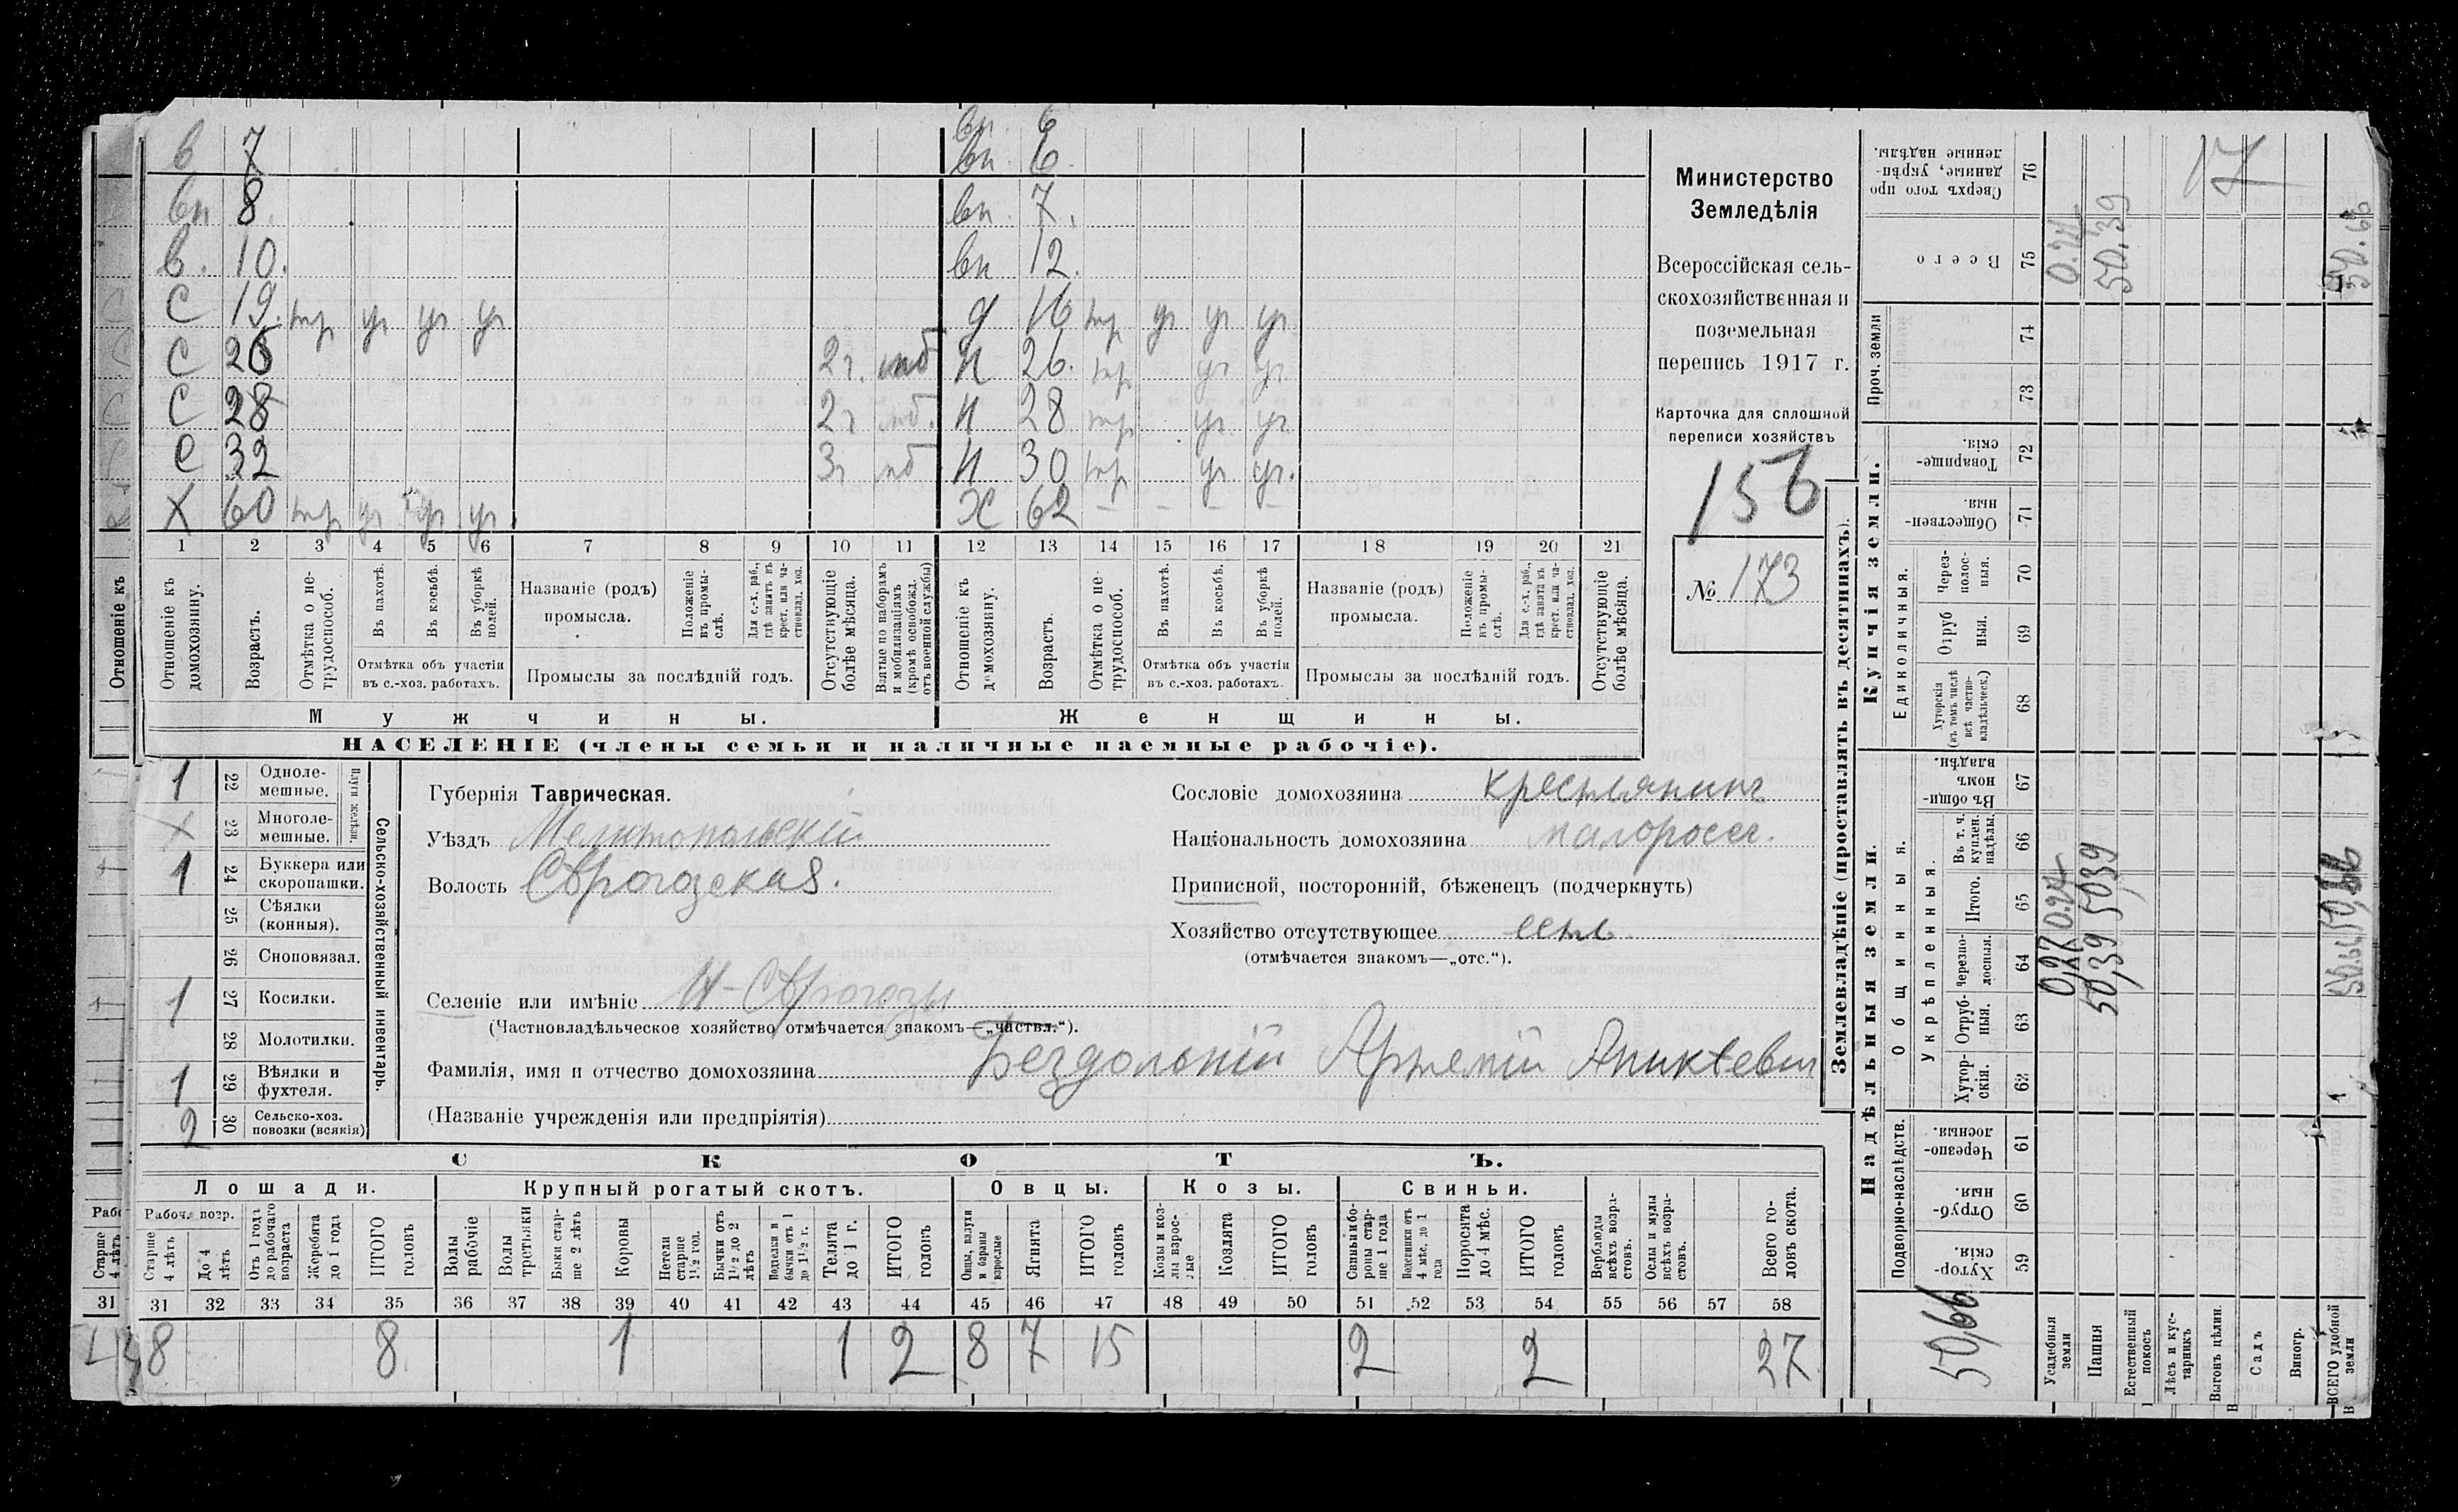 вп. 6
в 7 вп. 6.
вп 8. вп. 7.
в. 10. вп 12.
с 19. тр уч уч уч д 16 тр уч уч уч
с 26 2 г. моб н 26. тр уч уч
с 28 2 г моб. н 28 тр уч уч
с 32 3 г моб н 30 тр уч уч.
х 60 тр уч уч уч х 62 – – – –
1 2 3 4 5 6 7 8 9 10 11 12 13 14 15 16 17 18 19 20 21
Отношеніе къ домохозяину.
Возрастъ.
Отмѣтка о нетрудоспособ.
Въ пахотѣ.
Въ косьбѣ.
Въ уборкѣ полей.
Отмѣтка объ участіи
въ с.-хоз. работахъ.
Названіе (родъ)
промысла.
Положеніе въ промыслѣ.
Для с.-х. раб., гдѣ занятъ въ крест. или частновлад. хоз.
Промыслы за послѣдній годъ.
Отсутствующіе болѣе мѣсяца.
Взятые по наборамъ и мобилизаціямъ (кромѣ освобожд. отъ военной службы)
Отношеніе къ домохозяину.
Возрастъ.
Отмѣтка о нетрудоспособ.
Въ пахотѣ.
Въ косьбѣ.
Въ уборкѣ полей.
Отмѣтка объ участіи
въ с.-хоз. работахъ.
Названіе (родъ)
промысла.
Положеніе въ промыслѣ.
Для с.-х. раб., гдѣ занята въ крест. или частновлад. хоз.
Промыслы за послѣдній годъ.
Отсутствующіе болѣе мѣсяца.
Мужчины. Женщины.
НАСЕЛЕНІЕ (члены семьи и наличные наемные рабочіе).
Министерство
Земледѣлія
Всероссійская сель-
скохозяйственная и
поземельная
перепись 1917 г.
Карточка для сплошной
переписи хозяйствъ
156
№ 173
Отношеніе къ
Сельско-хозяйственный инвентарь.
Плуги желѣзн.
1 22 Одноле-
мешные.
х 23 Многоле-
мешные.
1 24 Буккера или
скоропашки.
25 Сѣялки
(конныя).
26 Сноповязал.
1 27 Косилки.
28 Молотилки.
1 29 Вѣялки и
фухтеля.
2 30 Сельско-хоз.
повозки (всякія)
Губернія Таврическая.
Уѣздъ Мелитопольскій
Волость
Селеніе или имѣніе
(Частновладѣльческое хозяйство отмѣчается знакомъ—„частвл.“).
Фамилія, имя и отчество домохозяина Бездольній Артемій Аникіевич
(Названіе учрежденія или предпріятія)
Сословіе домохозяина крестьянинъ
Національность домохозяина малоросс.
Приписной, посторонній, бѣженецъ (подчеркнуть)
Хозяйство отсутствующее есть
(отмѣчается знакомъ—„отс.“).
СКОТЪ.
Лошади. Крупный рогатый скотъ. Овцы. Козы. Свиньи.
Рабоч. возр.
Старше 4 лѣтъ
До 4 лѣтъ
Отъ 1 года до рабочаго возраста
Жеребята до 1 года
ИТОГО головъ
Волы рабочіе
Волы третьяки
Быки старше 2 лѣтъ
Коровы
Нетели старше 1 1/2 год.
Бычки отъ 1 1/2 до 2 лѣтъ
Подтелки и бычки отъ 1 до 1 1/2 г.
Телята до 1 г.
ИТОГО головъ
Овцы, валухи и бараны взрослые
Ягнята
ИТОГО головъ
Козы и козлы взрослые
Козлята
ИТОГО головъ
Свиньи и боровы старше 1 года
Подсвинки отъ 4 мѣс. до 1 года
Поросята до 4 мѣс.
ИТОГО головъ
Верблюды всѣхъ возрастовъ.
Ослы и мулы всѣхъ возрастовъ.
Всего головъ скота.
31 31 32 33 34 35 36 37 38 39 40 41 42 43 44 45 46 47 48 49 50 51 52 53 54 55 56 57 58
8 8. 1 1 2 8 7 15 2 2 27
Землевладѣніе (проставлять въ десятинахъ).
Купчія земли.
Надѣльныя земли.
Проч. земли
Единоличныя.
Общинныя.
Укрѣпленныя.
Подворно-наслѣдств.
Сверхъ того проданные, укрѣпленные надѣлы. 76
Всего 75
74
73
Товарищескія. 72
Общественныя. 71
Черезполосныя. 70
Отрубныя. 69
Хуторскія (въ томъ числѣ всѣ частновладѣльческ.) 68
Въ общинномъ владѣн. 67
Въ т. ч. куплен. надѣлы. 66
Итого. 65
Черезполосныя. 64
Отрубныя. 63
Хуторскія. 62
Черезполосныя. 61
Отрубныя. 60
Хуторскія. 59
Усадебныя земли 0,27 0.27 0.27
Пашня 50,39 50,39 50.39
Естественный покосъ
Лѣсъ и кустарникъ
Выгонъ цѣлин.
Садъ
Виногр.
ВСЕГО удобной земли 50.66 50,66 50.66
50,66
17